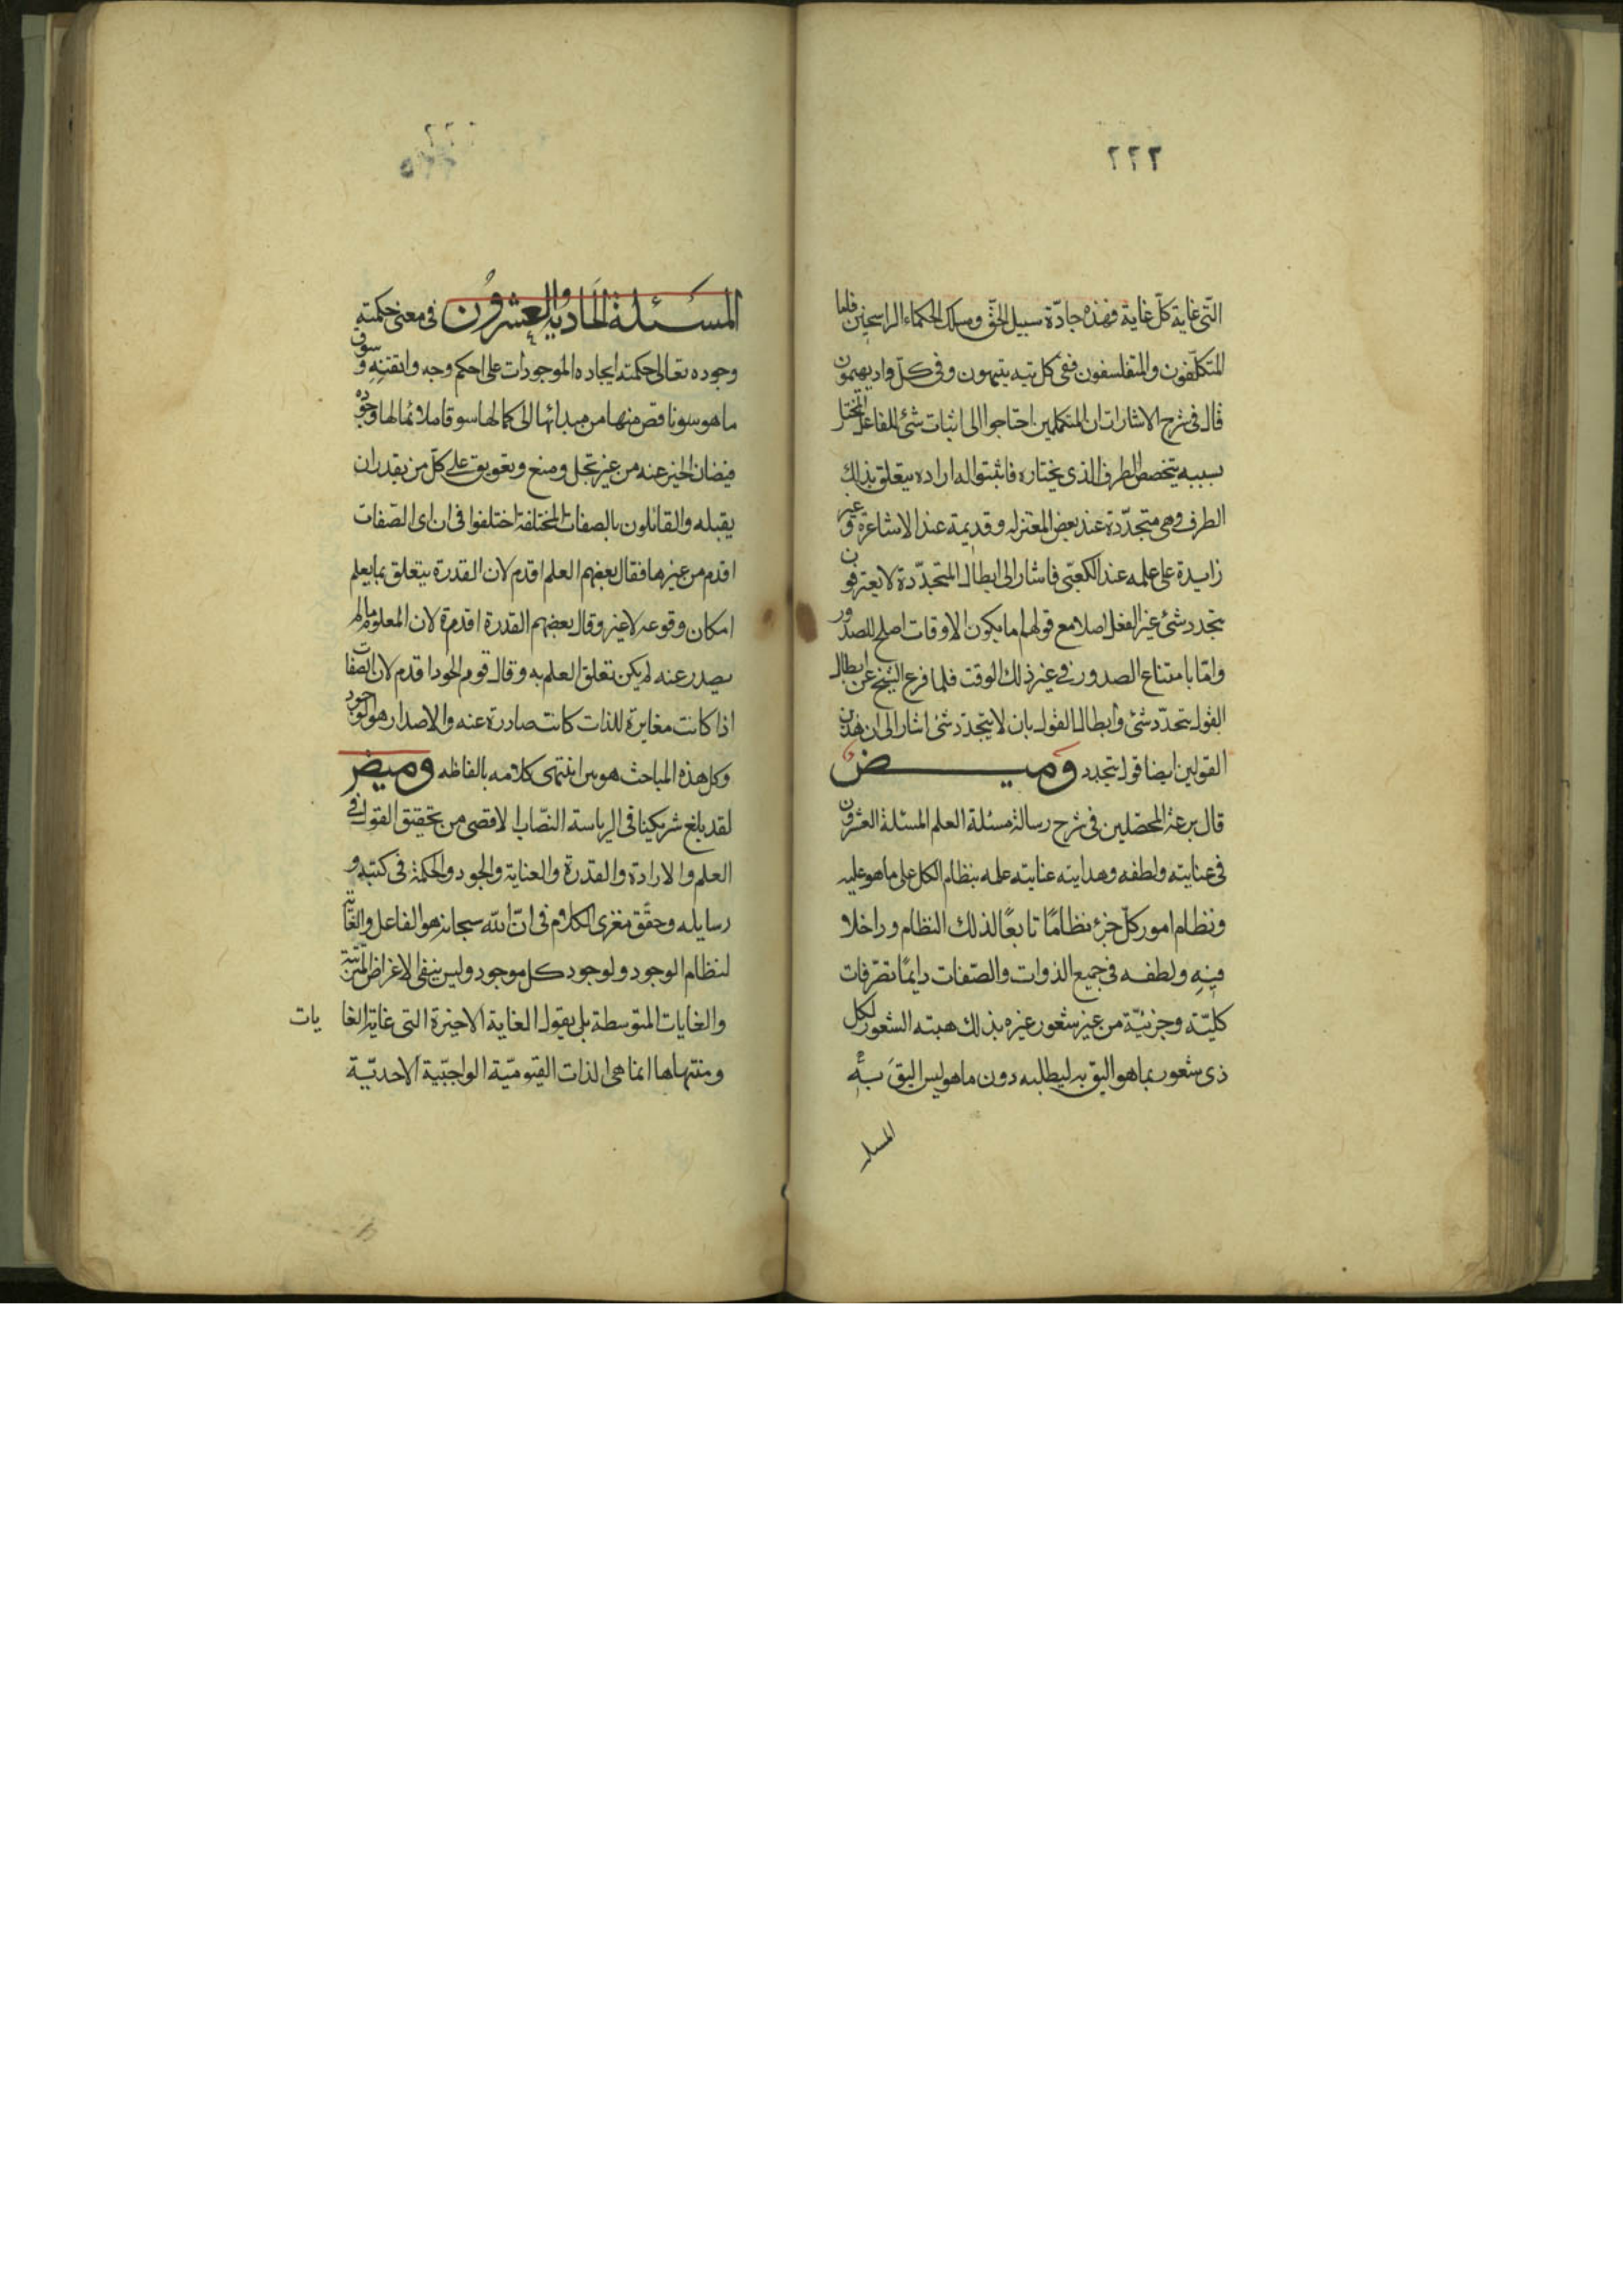 ٢٢٢
التّى غاية كلّ غاية فهذه جادّة سبيل الحقّ ومسلك الحكماء الراسخين فاما
المتكلّفون والمتفلسفون ففى كل تيه يتيهون وفى كلّ واد يهيمون
قال فى شرح الاشارات ان المتكلمين احتاجوا الى اثبات شئ للفاعل المختار
بسببه يتخصص الطرف الذى يختاره فاثبتوا له ارادة يتعلق بذلك
الطرف وهى متجدّدة عند بعض المعتزله وقديمة عند الاشاعرة وغير
زايدة على علمه عند الكعبّى فاشار الى ابطال المتجدّدة لا يعترفون
بتجدد شئ غير الفعل اصلا مع قولهم اما بكون الاوقات اصلح للصدور
وامّا بامتناع الصدور فى غير ذلك الوقت فلما فرغ الشيخ عن ابطال
القول بتجدّد شئ وابطال القول بان لا يتجدّد شئ اشار الى ان هذين
القولين ايضا قول بتجدد وميض
قال برعة المحصّلين فى شرح رسالة مسئلة العلم المسئلة العشرون
فى عنايته ولطفه وهدايته عنايته علمه بنظام الكل على ما هو عليه
ونظام امور كلّ جزء نظامًا تابعًا لذلك النظام وداخلا
فيه ولطفه فى جميع الذوات والصّفات دايمًا تصرّفات
كليّة وجزئيّة من غير شعور غيره بذلك هبته الشعور لكل
ذى شعور بما هو اليق به ليطلبه دون ما هو ليس اليق به
المسئلة
المسئلة الحادية والعشرون فى معنى حكمته
وجوده تعالى حكمته ايجاده الموجودات على احكم وجه واتقنه وسوق
ما هو ناقص منها من مبدائها الى كمالها سوقا ملائمًا لها وجوده
فيضان الخير عنه من غير بخل ومنع وتعويق على كلّ من يقدر ان
يقبله والقائلون بالصفات المختلفة اختلفوا فى ان اى الصّفات
اقدم من غيرها فقال بعضهم العلم اقدم لان القدرة يتعلق بما يعلم
امكان وقوعه لا غير وقال بعضهم القدرة اقدم لان المعلوم ما لم
يصدر عنه لم يكن تعلق العلم به وقال قوم الجود اقدم لان الصفات
اذا كانت مغايرة للذات كانت صادرة عنه والاصدار هو الجود
وكل هذه المباحث هوس انتهى كلامه بالفاظه وميض
لقد بلغ شريكينا فى الرياسة النصّاب الاقصى من تحقيق القول فى
العلم والارادة والقدرة والعناية والجود والحكمة فى كتبه و
رسايله وحقّق مغزى الكلام فى انّ الله سبحانه هو الفاعل والغاية
لنظام الوجود ولوجود كل موجود وليس ينفى الاغراض المترتبة
والغايات المتوسطة بل يقول الغاية الاخيرة التى غاية الغايات
ومنتهاها انما هى الذات القيّوميّة الواجبيّة الاحديّة